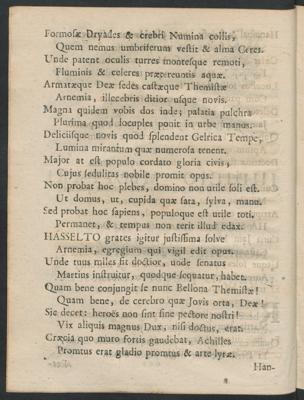 Formosæ Dryades & crebri Numina collis,
Quem nemus umbriferum vestit & alma Ceres.
Unde patent oculis turres montesque remoti,
Fluminis & celeres prætereuntis aquæ.
Armatæque Deæ sedes castæque Themistæ
Arnemia, illecebris ditior usque novis.
Magna quidem vobis dos inde; palatia pulchra
Plurima quod locuples ponit in urbe manus.
Deliciisque novis quod splendent Gelrica Tempe,
Lumina mirantum quæ numerosa tenent.
Major at est populo cordato gloria civis,
Cujus sedulitas nobile promit opus.
Non probat hoc plebes, domino non utile soli est.
Ut domus, ut, cupida quæ sata, sylva, manu.
Sed probat hoc sapiens, populoque est utile toti,
Permanet, & tempus non terit illud edax.
HASSELTO grates igitur justissima solve
Arnemia, egregium qui vigil edit opus.
Unde tuus miles fit doctior, unde senatus
Martius instruitur, quodque sequatur, habet.
Quam bene conjungit se nunc Bellona Themistæ!
Quam bene, de cerebro quæ Jovis orta, Dea!
Sic decet: heroës non sint sine pectore nostri!
Vix aliquis magnus Dux, nisi doctus, erat.
Græcia quo muro fortis gaudebat, Achilles
Promtus erat gladio promtus & arte lyræ.
Han-